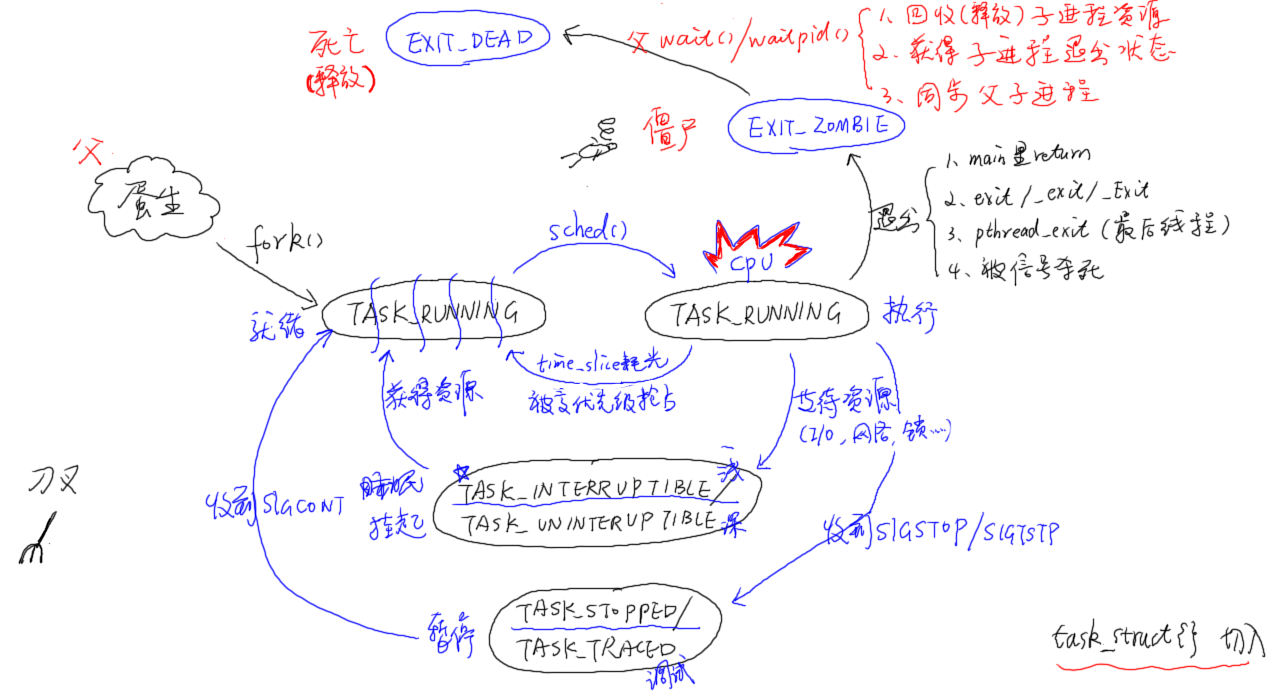 死亡
(释放)
EXIT_DEAD
父 wait()/waitpid()
1、回收(释放)子进程资源
2、获得子进程退出状态
3、同步父子进程
僵尸
EXIT_ZOMBIE
父
蛋生
fork()
sched()
CPU
退出
1、main里return
2、exit/_exit/_Exit
3、pthread_exit (最后线程)
4、被信号杀死
就绪
TASK_RUNNING
TASK_RUNNING
执行
time_slice耗光
被高优先级抢占
获得资源
等待资源
(I/O, 网络, 锁....)
刀叉
收到SIGCONT
睡眠
挂起
TASK_INTERRUPTIBLE/
浅
TASK_UNINTERUPTIBLE
深
收到SIGSTOP/SIGTSTP
暂停
TASK_STOPPED/
TASK_TRACED
调试
task_struct{} 切入